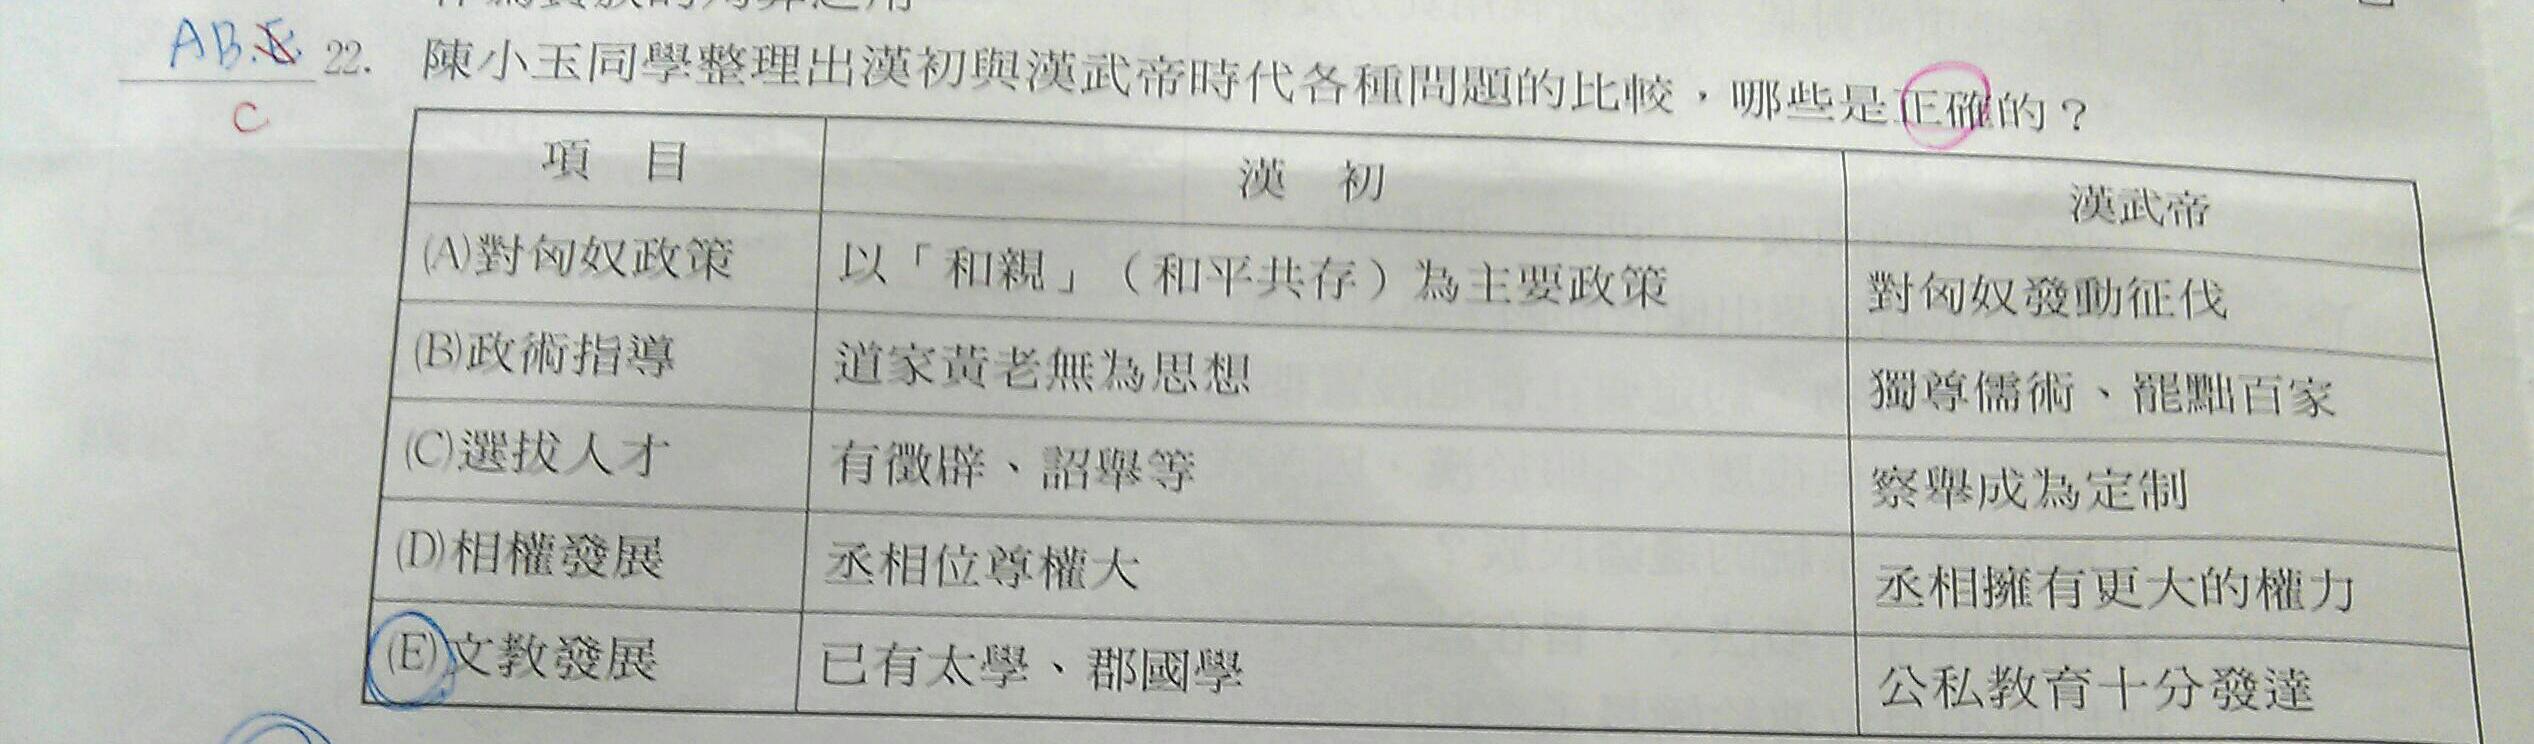 AB.E 22. 陳小玉同學整理出漢初與漢武帝時代各種問題的比較，哪些是正確的？
C
項 目 漢 初 漢武帝
(A)對匈奴政策 以「和親」（和平共存）為主要政策 對匈奴發動征伐
(B)政術指導 道家黃老無為思想 獨尊儒術、罷黜百家
(C)選拔人才 有徵辟、詔舉等 察舉成為定制
(D)相權發展 丞相位尊權大 丞相擁有更大的權力
(E)文教發展 已有太學、郡國學 公私教育十分發達